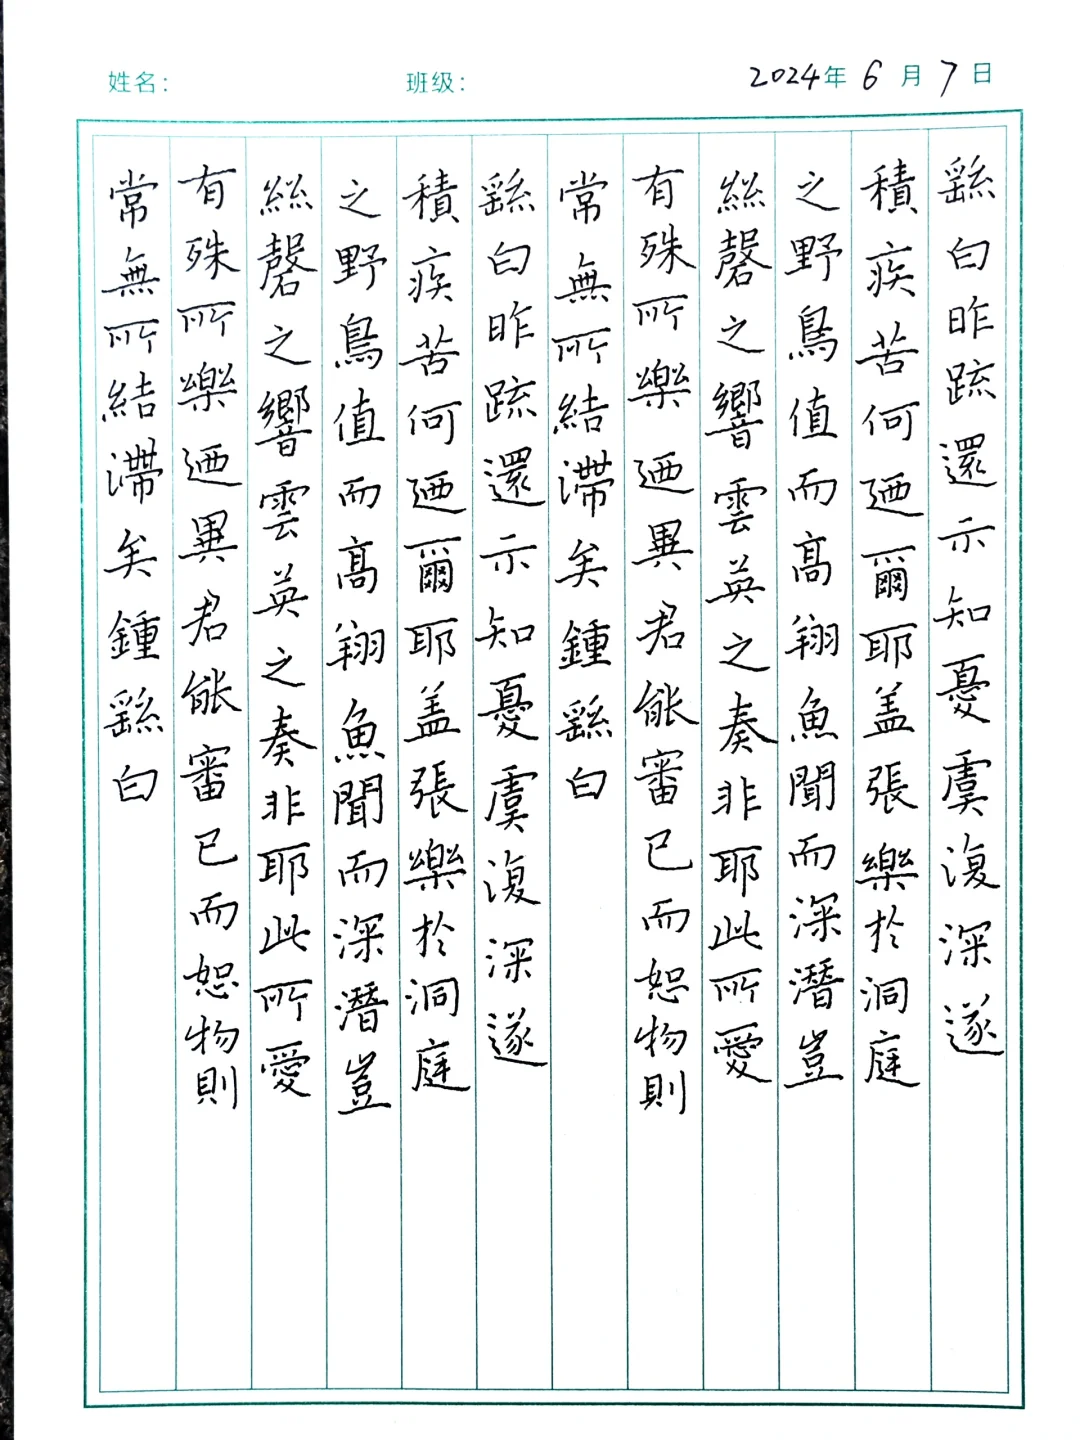 姓名： 班级： 2024年 6月 7日
繇白昨疏還示知憂虞復深遂
積疾苦何迺爾耶蓋張樂於洞庭
之野鳥值而高翔魚聞而深潛豈
絲磬之響雲英之奏非耶此所愛
有殊所樂迺異君能審已而恕物則
常無所結滯矣鍾繇白
繇白昨疏還示知憂虞復深遂
積疾苦何迺爾耶蓋張樂於洞庭
之野鳥值而高翔魚聞而深潛豈
絲磬之響雲英之奏非耶此所愛
有殊所樂迺異君能審已而恕物則
常無所結滯矣鍾繇白